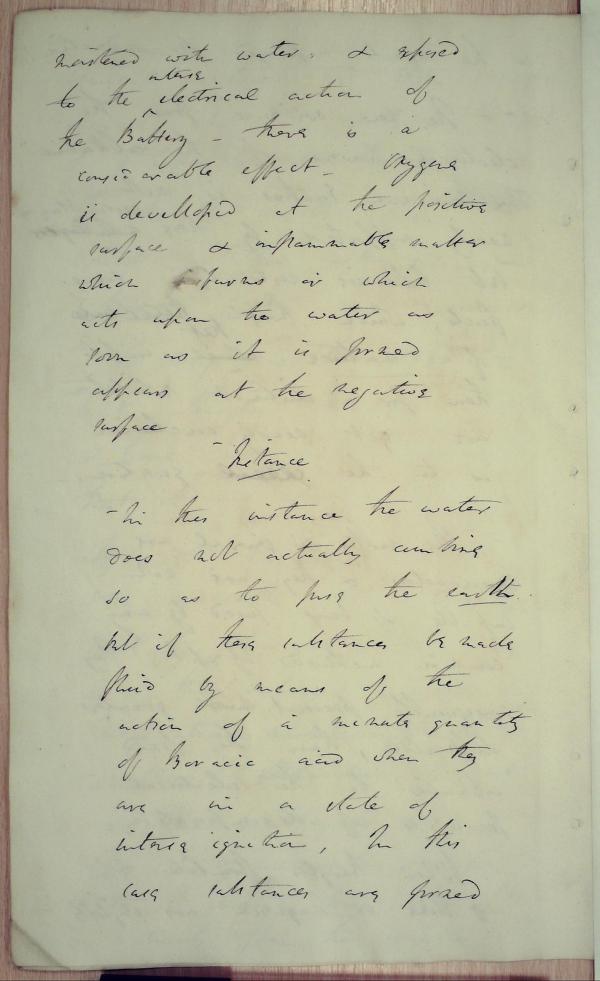 moistened with water. & exposed
intense
to the electrical action of
the Battery - there is a
considerable effect - Oxygene
is developed at the positive
surface & inflammable matter
which burns or which
acts upon the water as
soon as it is formed
appears at the negative
surface
- Instance
- In this instance the water
does not actually combine
so as to fuse the earth.
but if these substances be made
fluid by means of the
action of a minute quantity
of Boracic acid when they
are in a state of
intense ignition, In this
case substances are formed